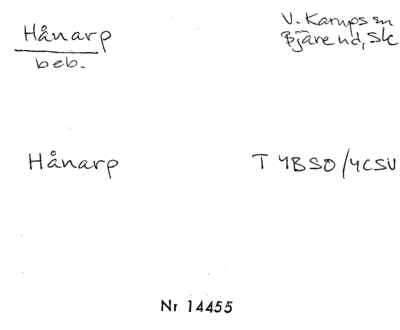 Hånarp
V. Karups sn
Bjäre hd, Sk
beb.
Hånarp
T 4BSO/4CSV
Nr 14455